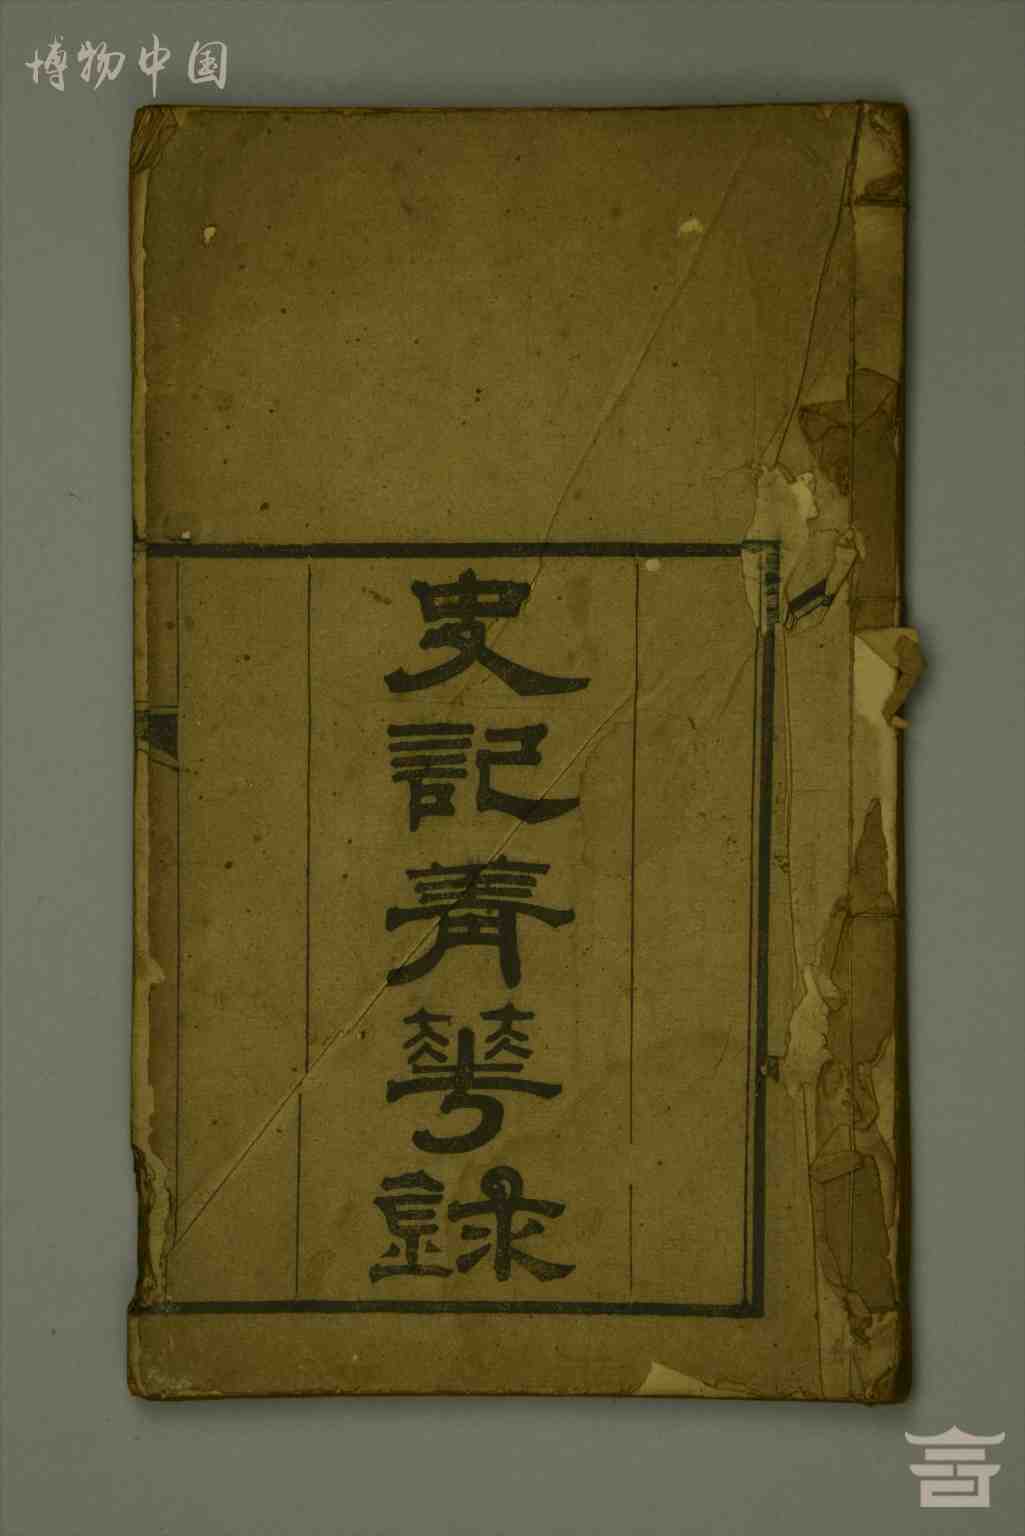 博物中国
史記菁華録